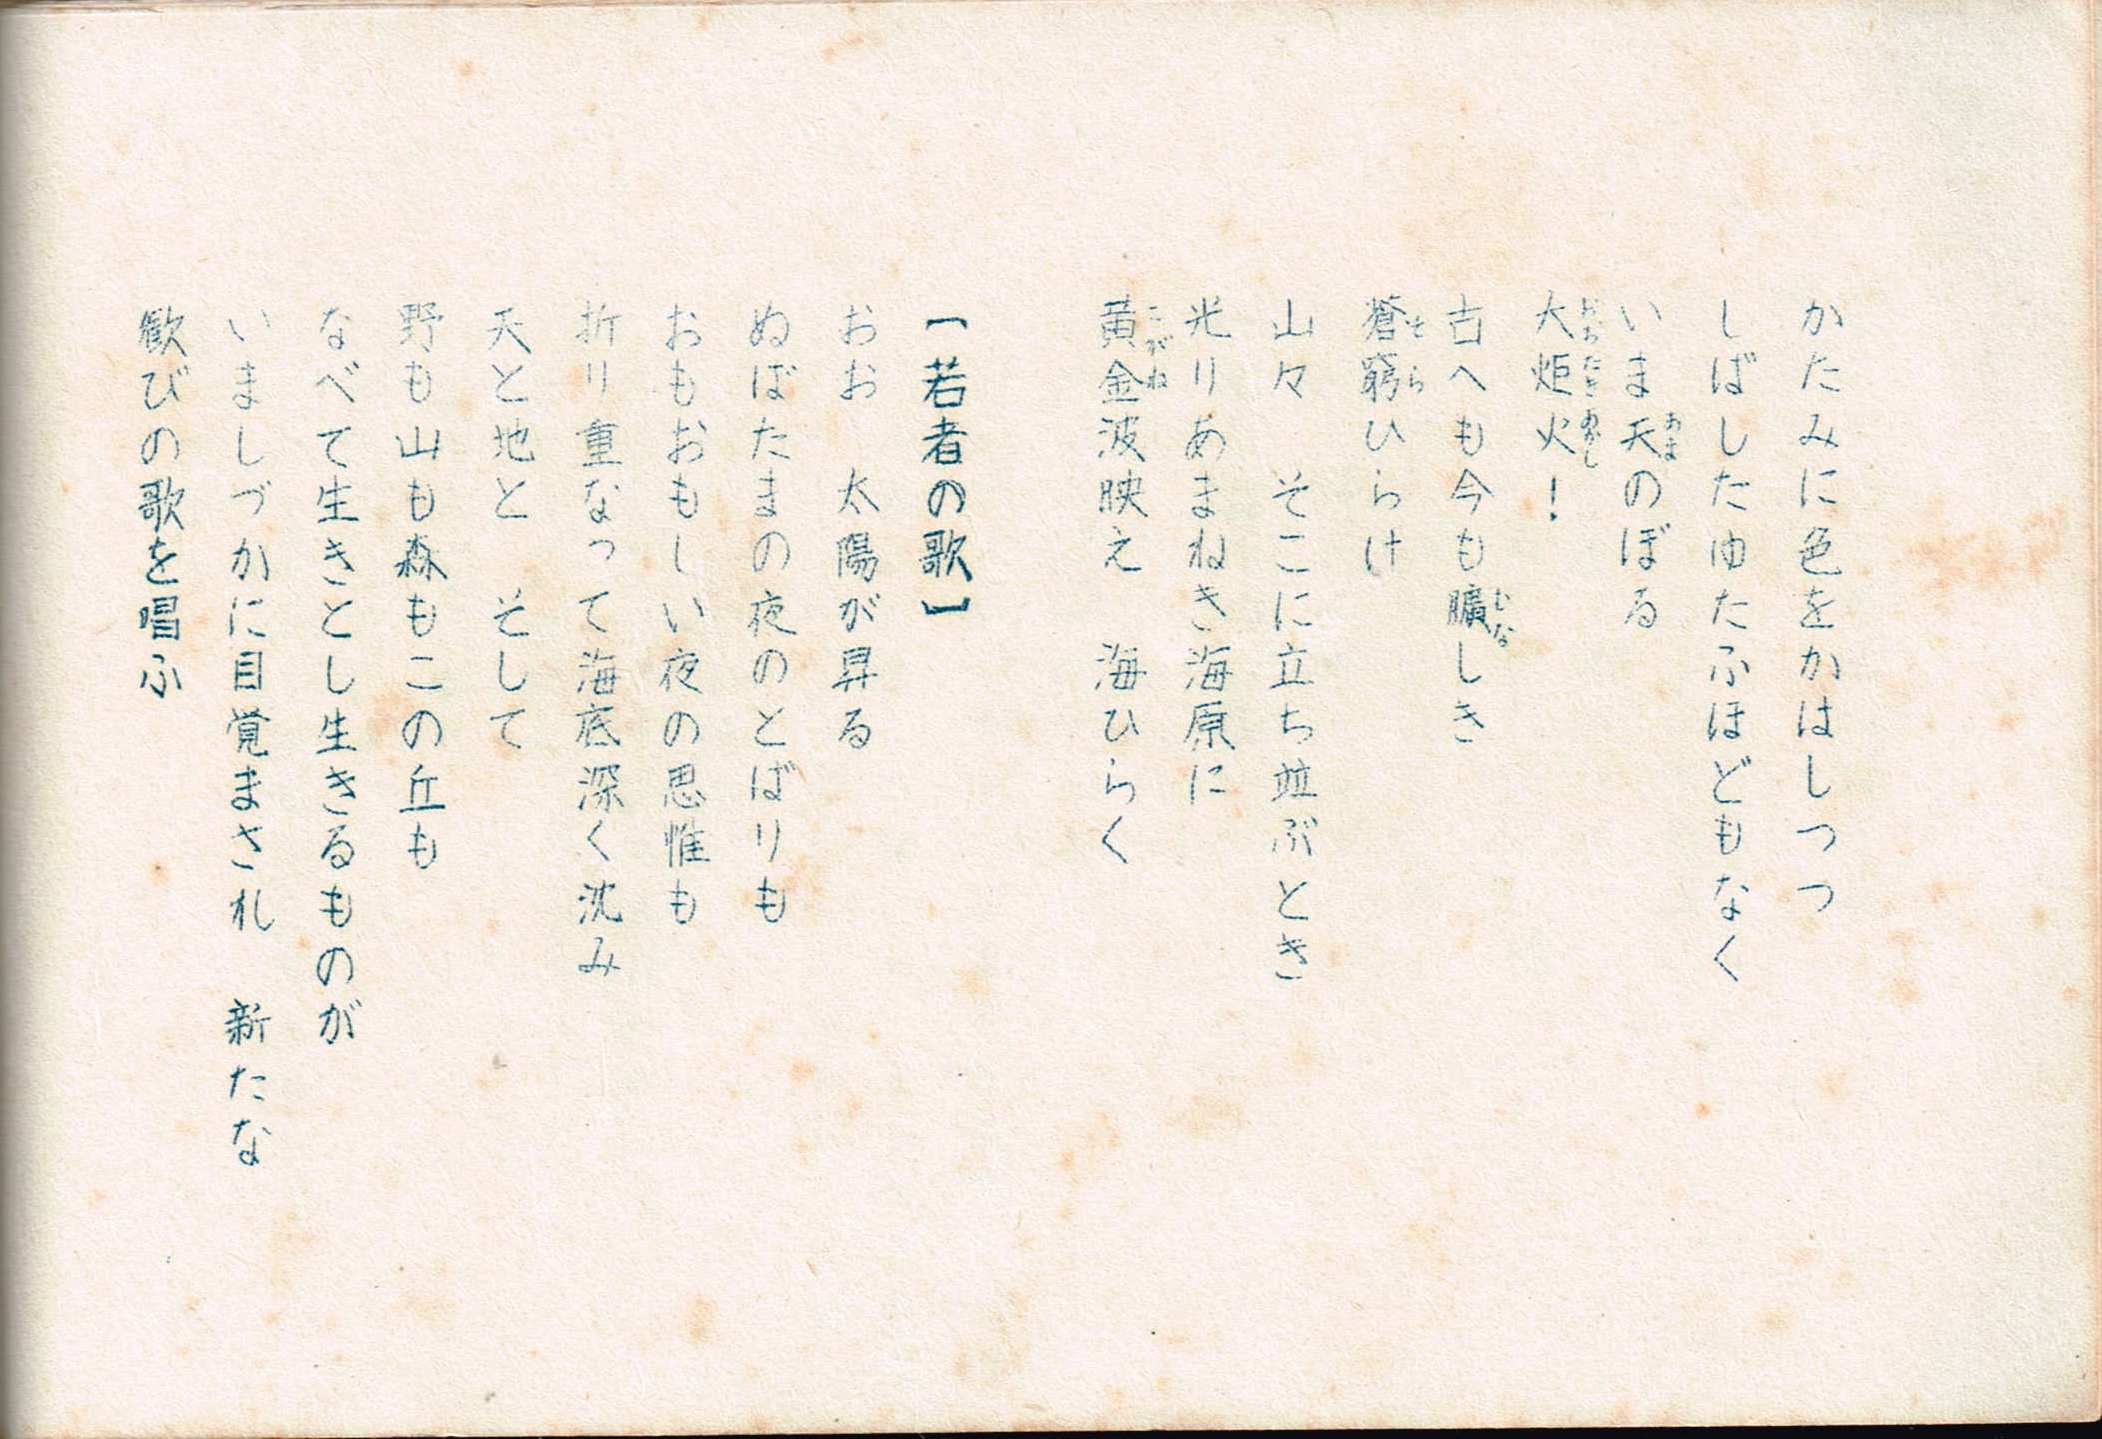 かたみに色をかはしつつ
しばしたゆたふほどもなく
いま天のぼる
あま
大炬火！
古へも今も曠しき
むな
蒼窮ひらけ
そら
山々　そこに立ち並ぶとき
光りあまねき海原に
黄金波映え　海ひらく
こがね
［若者の歌］
おお　太陽が昇る
ぬばたまの夜のとばりも
おもおもしい夜の思惟も
折り重なって海底深く沈み
天と地と　そして
野も山も森もこの丘も
なべて生きとし生きるものが
いましづかに目覚まされ　新たな
歓びの歌を唱ふ